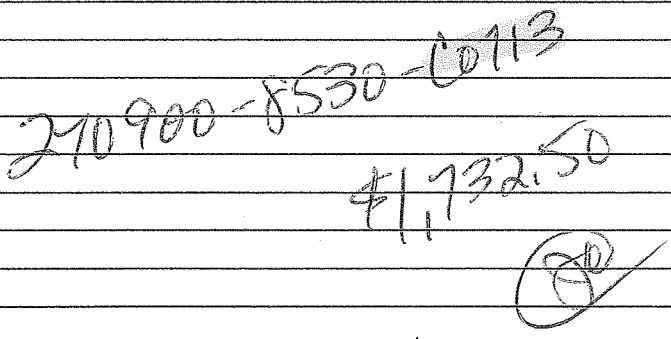 270900-8530-C0113
$1,732.50